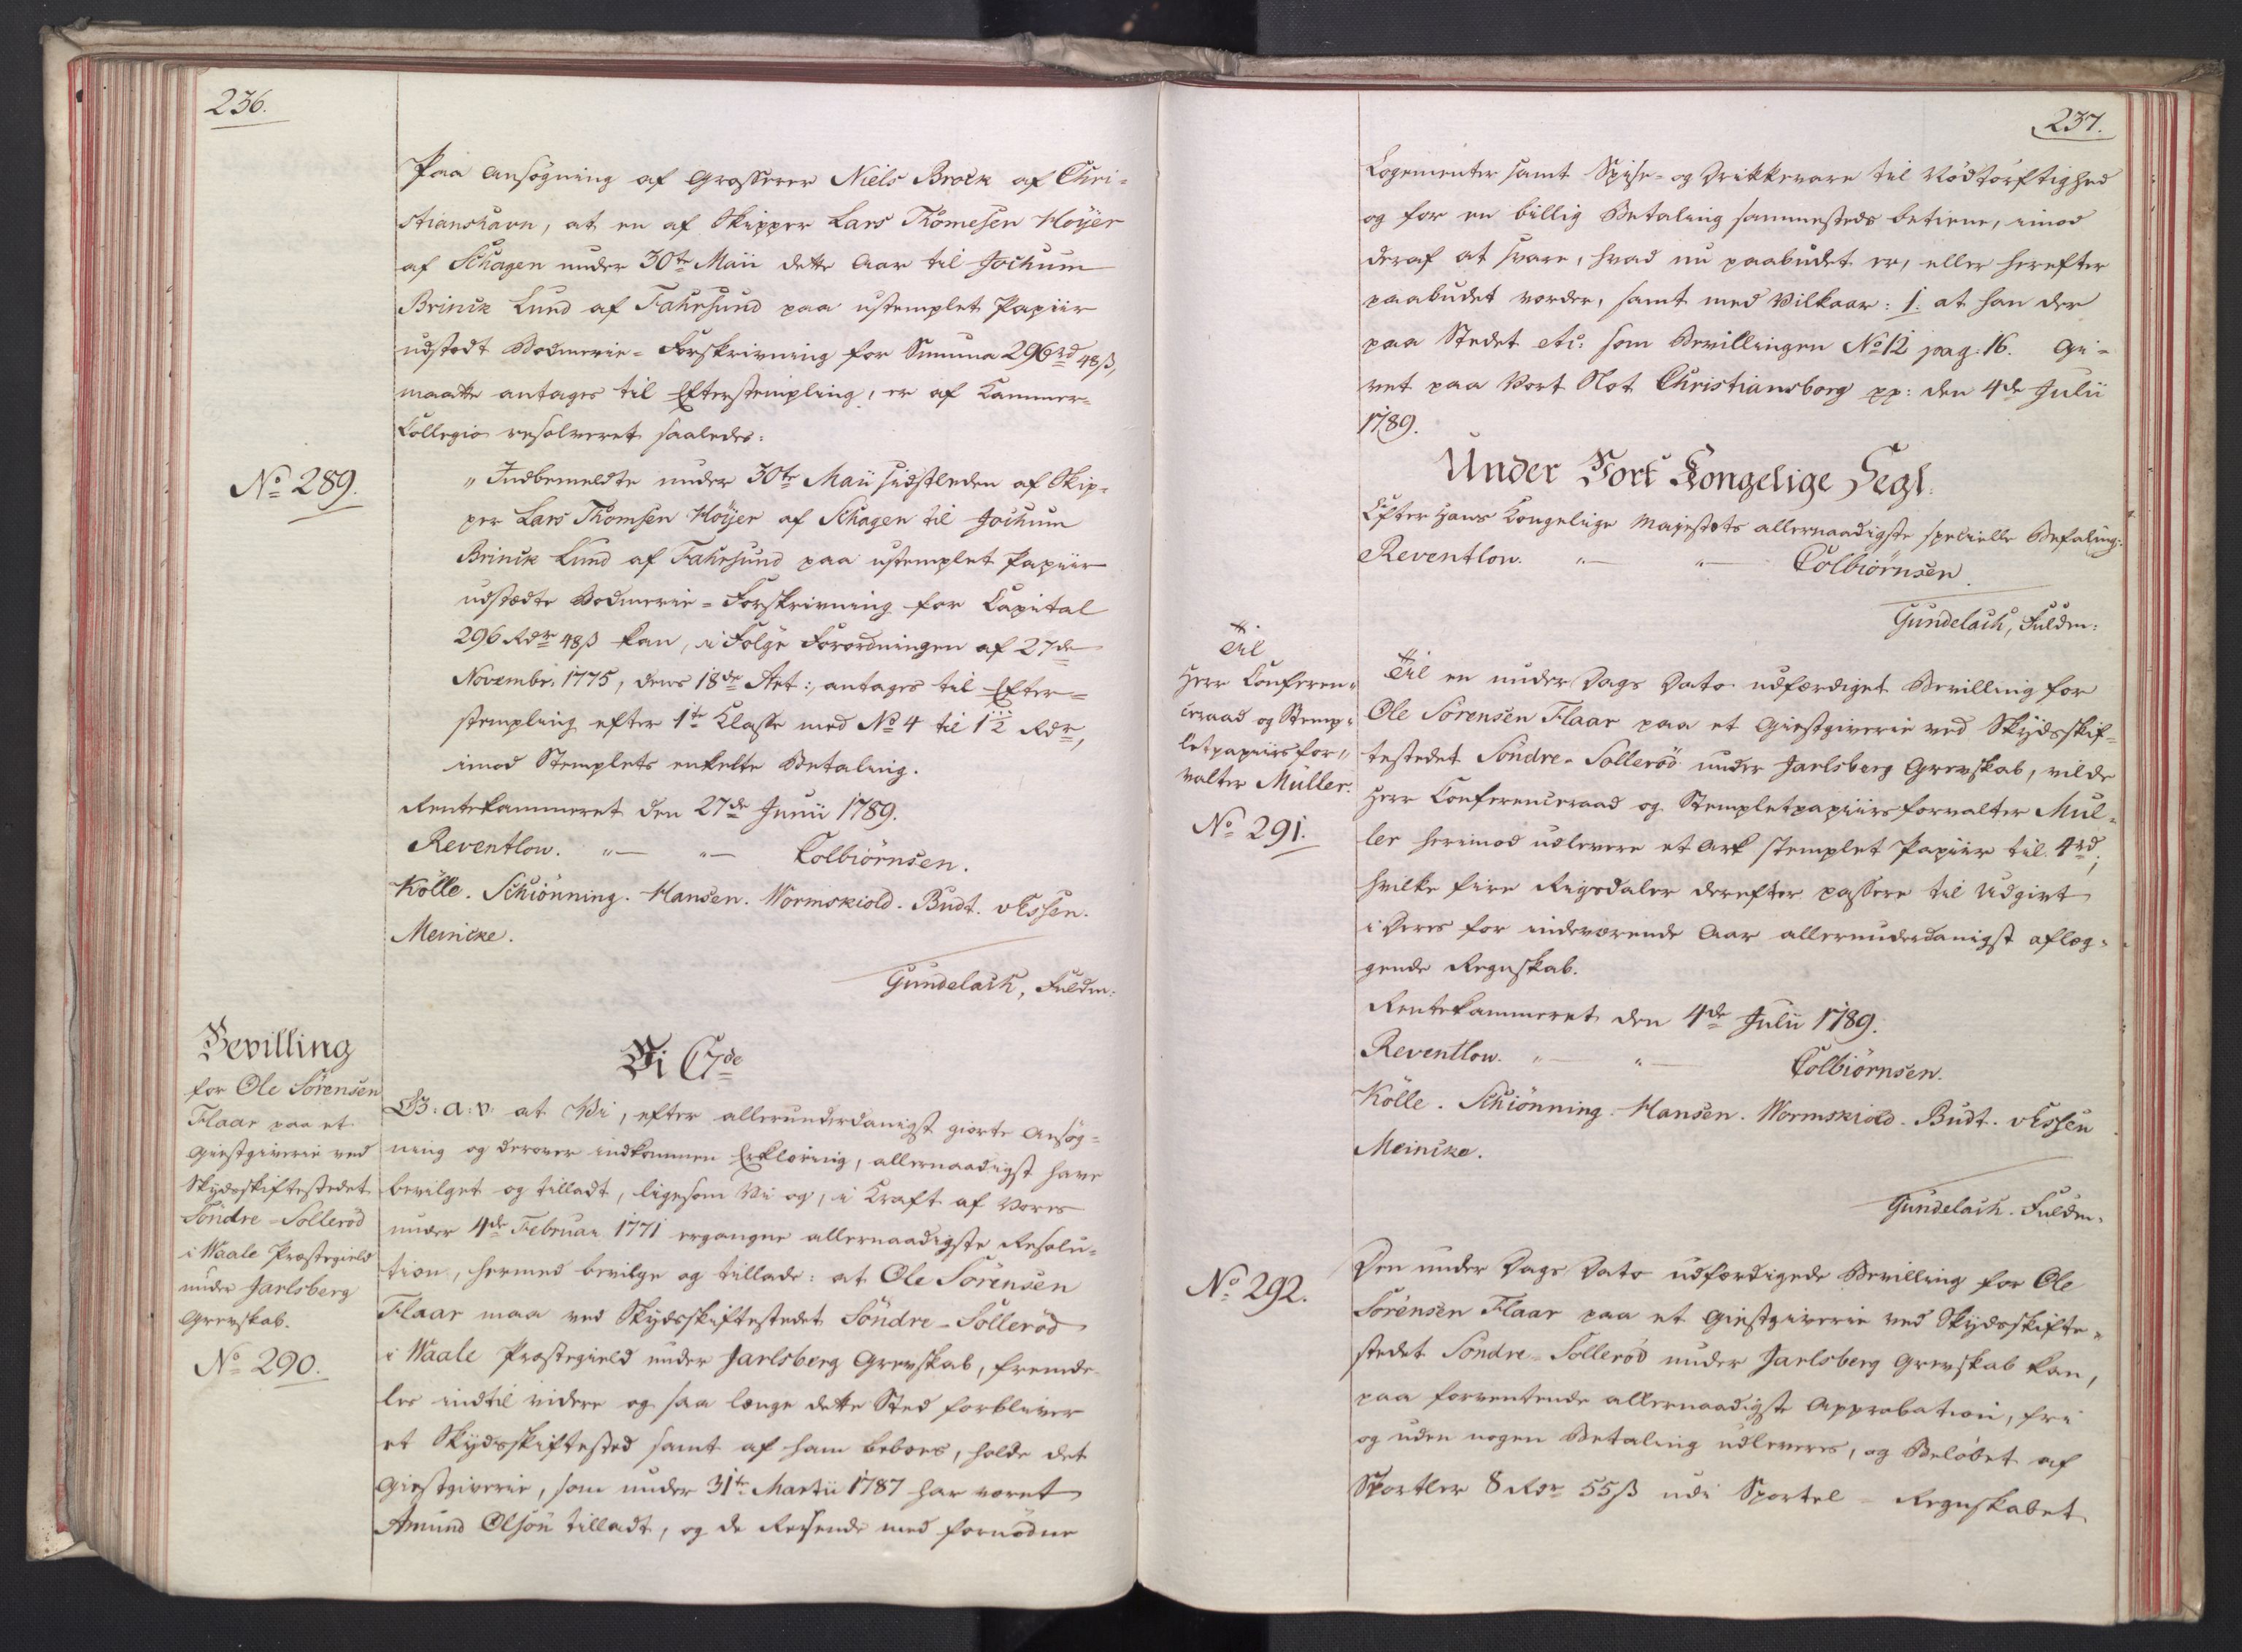 236.
Paa Ansøgning af Grosserer Niels Brock af Chri-
stianshavn, at en af Skipper Lars Thomesen Höyer
af Schagen under 30te Maii dette Aar til Jochum
Brinck Lund af Fahrsund paa ustemplet Papiir
udstedt Bodmerie-Forskrivning for Summa 296 rd 48 ß,
maatte antages til Efterstempling, er af Kammer-
Collegio resolveret saaledes:
No 289.
"Indbemeldte under 30te Maii sidstleden af Skip-
per Lars Thomsen Höyer af Schagen til Jochum
Brinck Lund af Fahrsund paa ustemplet Papiir
udstædte Bodmerie-Forskrivning for Capital
296 Rdr 48 ß kan, i Følge Forordningen af 27de
Novembr: 1775, dens 18de Art:, antages til Efter-
stempling efter 1te Classe med No 4 til 1 1/2 Rdr,
imod Stemplets enkelte Betaling.
Rentekammeret den 27de Junii 1789.
Reventlow. "— "— Colbiörnsen.
Kölle. Schiönning. Hansen. Wormskiold. Budt. vEssen.
Meincke.
Gundelach, Fuldm:
Bevilling
for Ole Sörensen
Flaar paa et
Giestgiverie ved
Skydsskiftestedet
Söndre-Solleröd
i Waale Præstegield
under Jarlsberg
Grevskab.
No 290.
Vi C7de
G: A: V: at Vi, efter allerunderdanigst giorte Ansøg-
ning og derover indkommen Erklæring, allernaadigst have
bevilget og tilladt, ligesom Vi og, i Kraft af Vores
under 4de Februar 1771 ergangne allernaadigste Resolu-
tion, hermed bevilge og tillade: at Ole Sörensen
Flaar maa ved Skydsskiftestedet Söndre-Solleröd
i Waale Præstegield under Jarlsberg Grevskab, fremde-
les indtil videre og saa længe dette Sted forbliver
et Skydsskiftested samt af ham beboes, holde det
Giestgiverie, som under 31te Martii 1787 har været
Amund Olsön tilladt, og de Reisende med fornødne
237.
Logementer samt Spise- og Drikkevare til Nødtørftighed
og for en billig Betaling sammesteds betiene, imod
deraf at svare, hvad nu paabudet er, eller herefter
paabudet vorder, samt med Vilkaar: 1. at han der
paa Stedet etc: som Bevillingen No 12 pag: 16. Gi-
vet paa Vort Slot Christiansborg pp: den 4de Julii
1789.
Under Vort Kongelige Segl.
Efter Hans Kongelige Majestæts allernaadigste specielle Befaling:
Reventlow. "— "— Colbiörnsen.
Gundelach, Fuldm:
Til
Herr Conferen-
ceraad og Stemp-
letpapiirsfor-
valter Müller.
No 291.
Til en under Dags Dato udfærdiget Bevilling for
Ole Sörensen Flaar paa et Giestgiverie ved Skydsskif-
testedet Söndre-Solleröö under Jarlsberg Grevskab, vilde
Herr Conferenceraad og Stempletpapiirsforvalter Mül-
ler herimod udlevere et Ark stemplet Papiir til 4 rd,
hvilke fire Rigsdaler derefter passere til Udgivt
i Deres for indeværende Aar allerunderdanigst aflæg-
gende Regnskab.
Rentekammeret den 4de Julii 1789.
Reventlow. "— "— Colbiörnsen.
Kölle. Schiönning. Hansen. Wormskiold. Budt. vEssen
Meincke.
Gundelach. Fuldm:
No 292.
Den under Dags Dato udfærdigede Bevilling for Ole
Sörensen Flaar paa et Giestgiverie ved Skydsskifte-
stedet Söndre-Solleröd under Jarlsberg Grevskab kan,
paa forventende allernaadigste Approbation, fri
og uden nogen Betaling udleveres, og Beløbet af
Sportler 8 Rdr 55 ß udi Sportel-Regnskabet